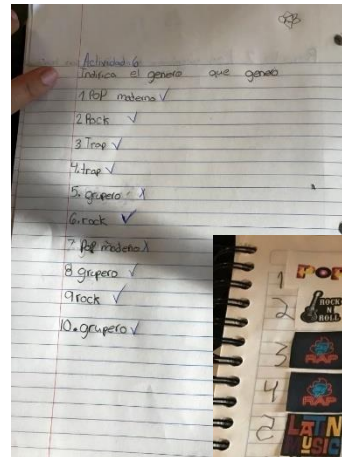 Actividad 6:
Indirica el genero que genero
1 POP moderno ✓
2 Rock ✓
3 Trap ✓
4. trap ✓
5. grupero X
6. rock ✓
7 Pop moderno X
8 grupero ✓
9 rock ✓
10. grupero ✓
1 POP
2 ROCK N ROLL
3 RAP
4 RAP
LATIN MUSIC